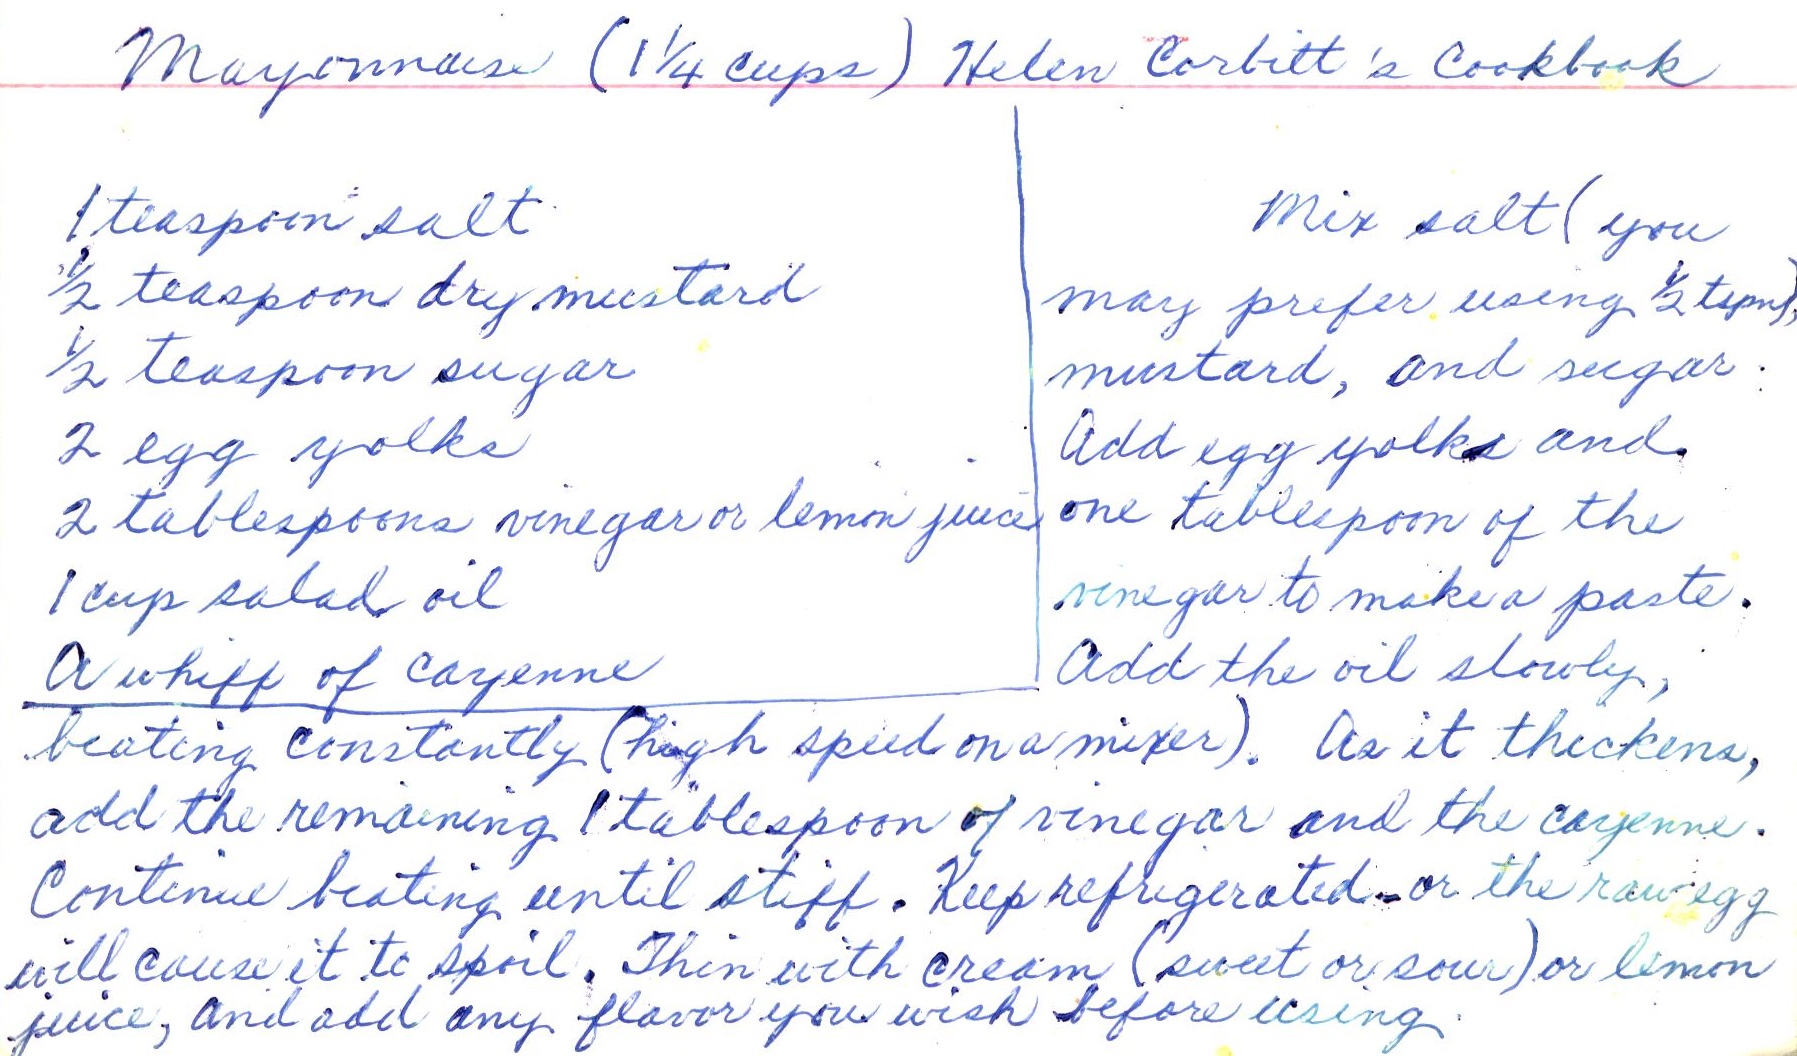 Mayonnaise (1 1/4 cups) Helen Corbitt's Cookbook
1 teaspoon salt
1/2 teaspoon dry mustard
1/2 teaspoon sugar
2 egg yolks
2 tablespoons vinegar or lemon juice
1 cup salad oil
A whiff of cayenne
Mix salt (you
may prefer using 1/2 tspn),
mustard, and sugar.
Add egg yolks and
one tablespoon of the
vinegar to make a paste.
Add the oil slowly,
beating constantly (high speed on a mixer). As it thickens,
add the remaining 1 tablespoon of vinegar and the cayenne.
Continue beating until stiff. Keep refrigerated - or the raw egg
will cause it to spoil. Thin with cream (sweet or sour) or lemon
juice, and add any flavor you wish before using.